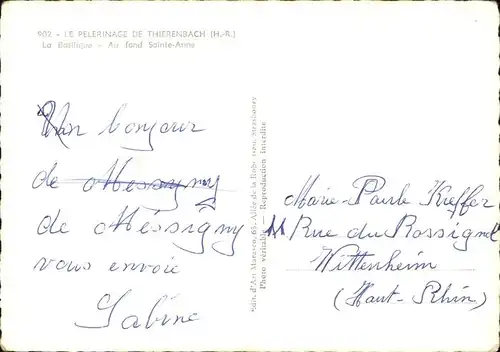 902 - LE PELERINAGE DE THIERENBACH (H.-R.)
La Basilique - Au fond Sainte-Anne
Un bonjour
de
de Méssigny
vous envoie
Sabine
Edit. d'Art 63, Allée de la Strasbourg
Photo véritable — Reproduction Interdite
Marie-Paule Kieffer
11 Rue du Rossignol
Wittenheim
(Haut-Rhin)